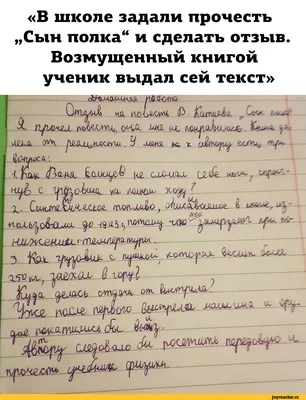 «В школе задали прочесть
„Сын полка“ и сделать отзыв.
Возмущенный книгой
ученик выдал сей текст»
Домашняя работа
Отзыв на повесть В. Катаева „Сын полка"
Я прочел повесть, она мне не понравилась. Книга да-
лека от реальности. У меня к автору есть три
вопроса:
1. Как Ваня Солнцев не сломал себе ноги, спрыг-
нув с грузовика на полном ходу?
2. Синтетическое топливо, описываемое в книге, из-
пользовали до 1943, потому что оно замерзает при по-
нижении температуры.
3. Как грузовик с пушкой, которая весит более
250 кг, заехал в гору?
Куда делась отдача от выстрела?
Уже после первого выстрела машина и ору-
дие покатились бы вниз.
Автору следовало бы посетить передовую и
прочесть учебник физики.
joyreactor.cc